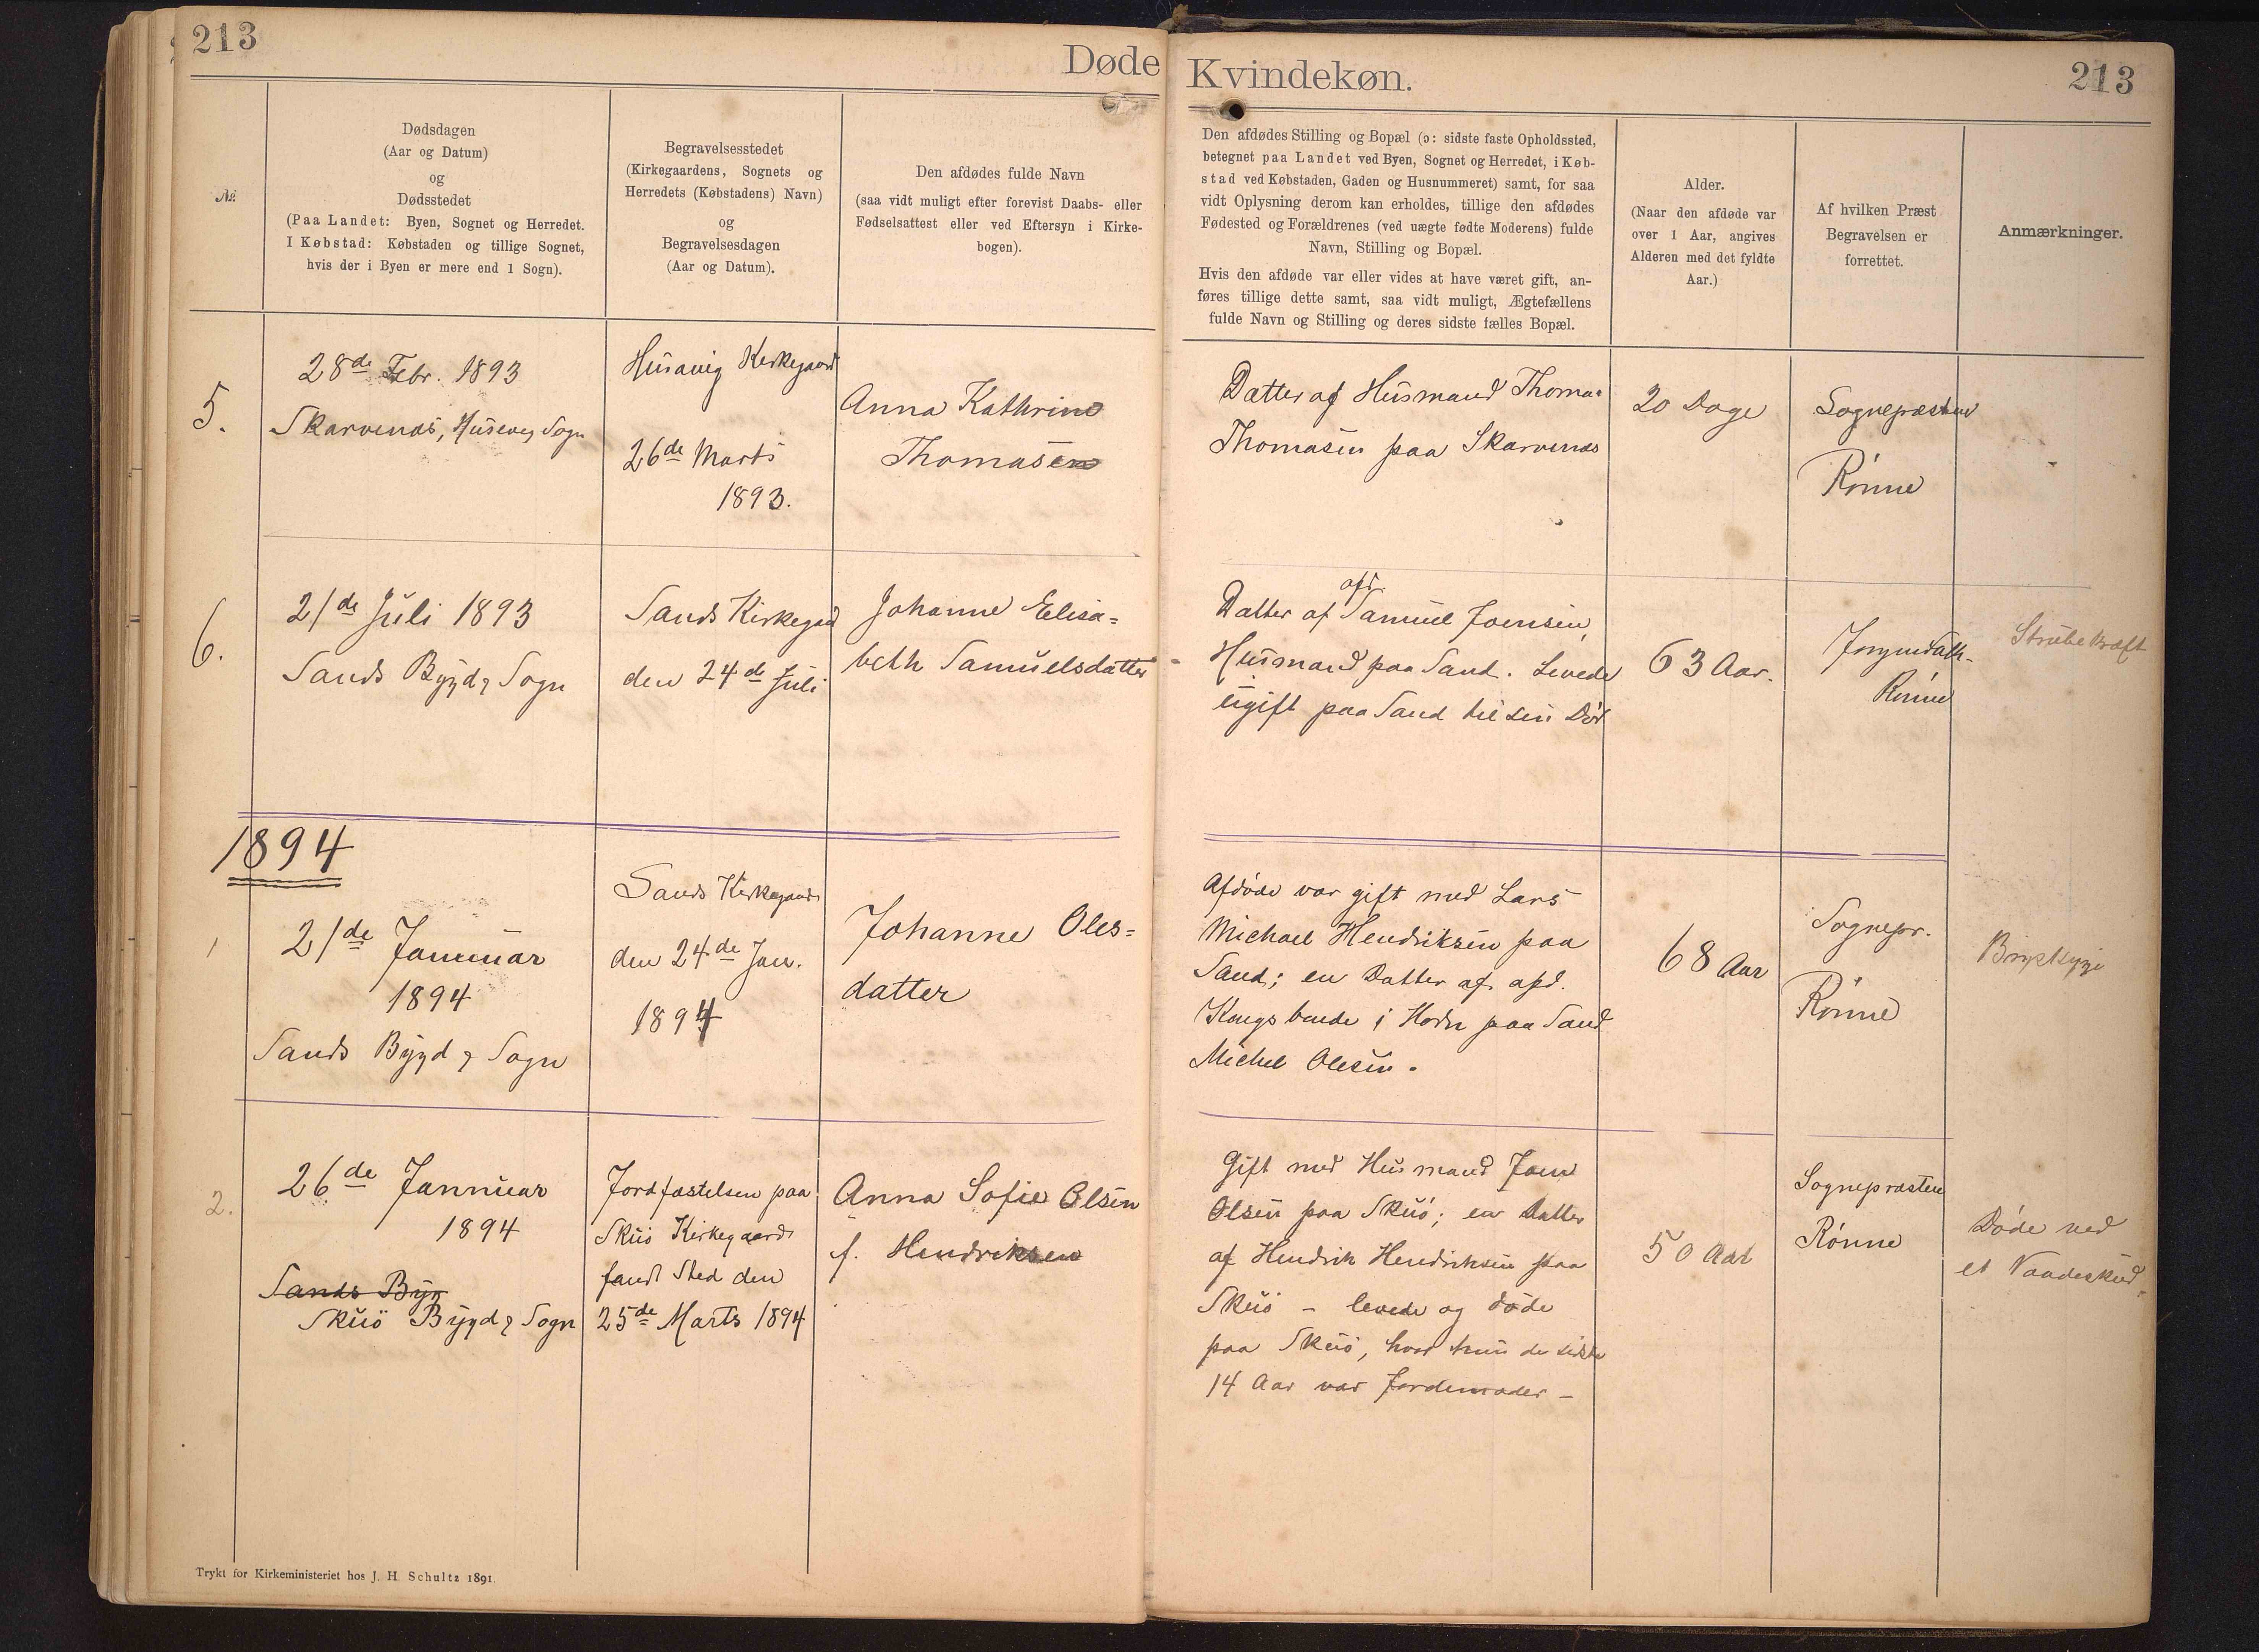 213
Døde
Kvindekøn.
213
№
Dødsdagen
(Aar og Datum)
og
Dødsstedet
(Paa Landet: Byen, Sognet og Herredet.
I Købstad: Købstaden og tillige Sognet,
hvis der i Byen er mere end 1 Sogn).
Begravelsesstedet
(Kirkegaardens, Sognets og
Herredets (Købstadens) Navn)
og
Begravelsesdagen
(Aar og Datum).
Den afdødes fulde Navn
(saa vidt muligt efter forevist Daabs- eller
Fødselsattest eller ved Eftersyn i Kirke-
bogen).
Den afdødes Stilling og Bopæl (ɔ: sidste faste Opholdssted,
betegnet paa Landet ved Byen, Sognet og Herredet, i Køb-
stad ved Købstaden, Gaden og Husnummeret) samt, for saa
vidt Oplysning derom kan erholdes, tillige den afdødes
Fødested og Forældrenes (ved uægte fødte Moderens) fulde
Navn, Stilling og Bopæl.
Hvis den afdøde var eller vides at have været gift, an-
føres tillige dette samt, saa vidt muligt, Ægtefællens
fulde Navn og Stilling og deres sidste fælles Bopæl.
Alder.
(Naar den afdøde var
over 1 Aar, angives
Alderen med det fyldte
Aar.)
Af hvilken Præst
Begravelsen er
forrettet.
Anmærkninger.
5.
28de Febr. 1893
Skarvenæs, Husevig Sogn
Husavig Kirkegaard
26de Marts
1893.
Anna Kathrine
Thomasen
Datter af Husmand Thomas
Thomasen paa Skarvenæs
20 Dage
Sognepræsten
Rønne
6.
21de Juli 1893
Sands Bygd & Sogn
Sands Kirkegaard
den 24de Juli
Johanne Elisa=
beth Samuelsdatter
Datter af afd. Samuel Joensen,
Husmand paa Sand. Levede
ugift paa Sand til sin Død
63 Aar.
Rønne
Strubekræft
1894
1
21de Januar
1894
Sands Bygd & Sogn
Sands Kirkegaard
den 24de Jan.
1894
Johanne Oles=
datter
Afdøde var gift med Lars
Michael Hendriksen paa
Sand; en Datter af afd.
Kongsbonde i Hodn paa Sand
Michel Olesen.
68 Aar
Sognepr.
Rønne
Brystsyge
2.
26de Jannuar
1894
Sands Byg
Skuö Bygd & Sogn
Jordfæstelsen paa
Skuö Kirkegaard
fandt Sted den
25de Marts 1894
Anna Sofie Olsen
f. Hendriksen
Gift med Husmand Joen
Olsen paa Skuö; en Datter
af Hendrik Hendriksen paa
Skuö – levede og døde
paa Skuö, hvor hun de sidste
14 Aar var Jordemoder –
50 Aar
Sognepræsten
Rønne
Døde ved
et Vaadeskud.
Trykt for Kirkeministeriet hos J. H. Schultz 1891.